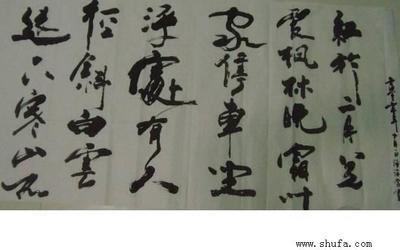 遠上寒山石
徑斜白雲
處有人
家停車坐
愛楓林晚霜叶
紅於二月花
www.shufa.com